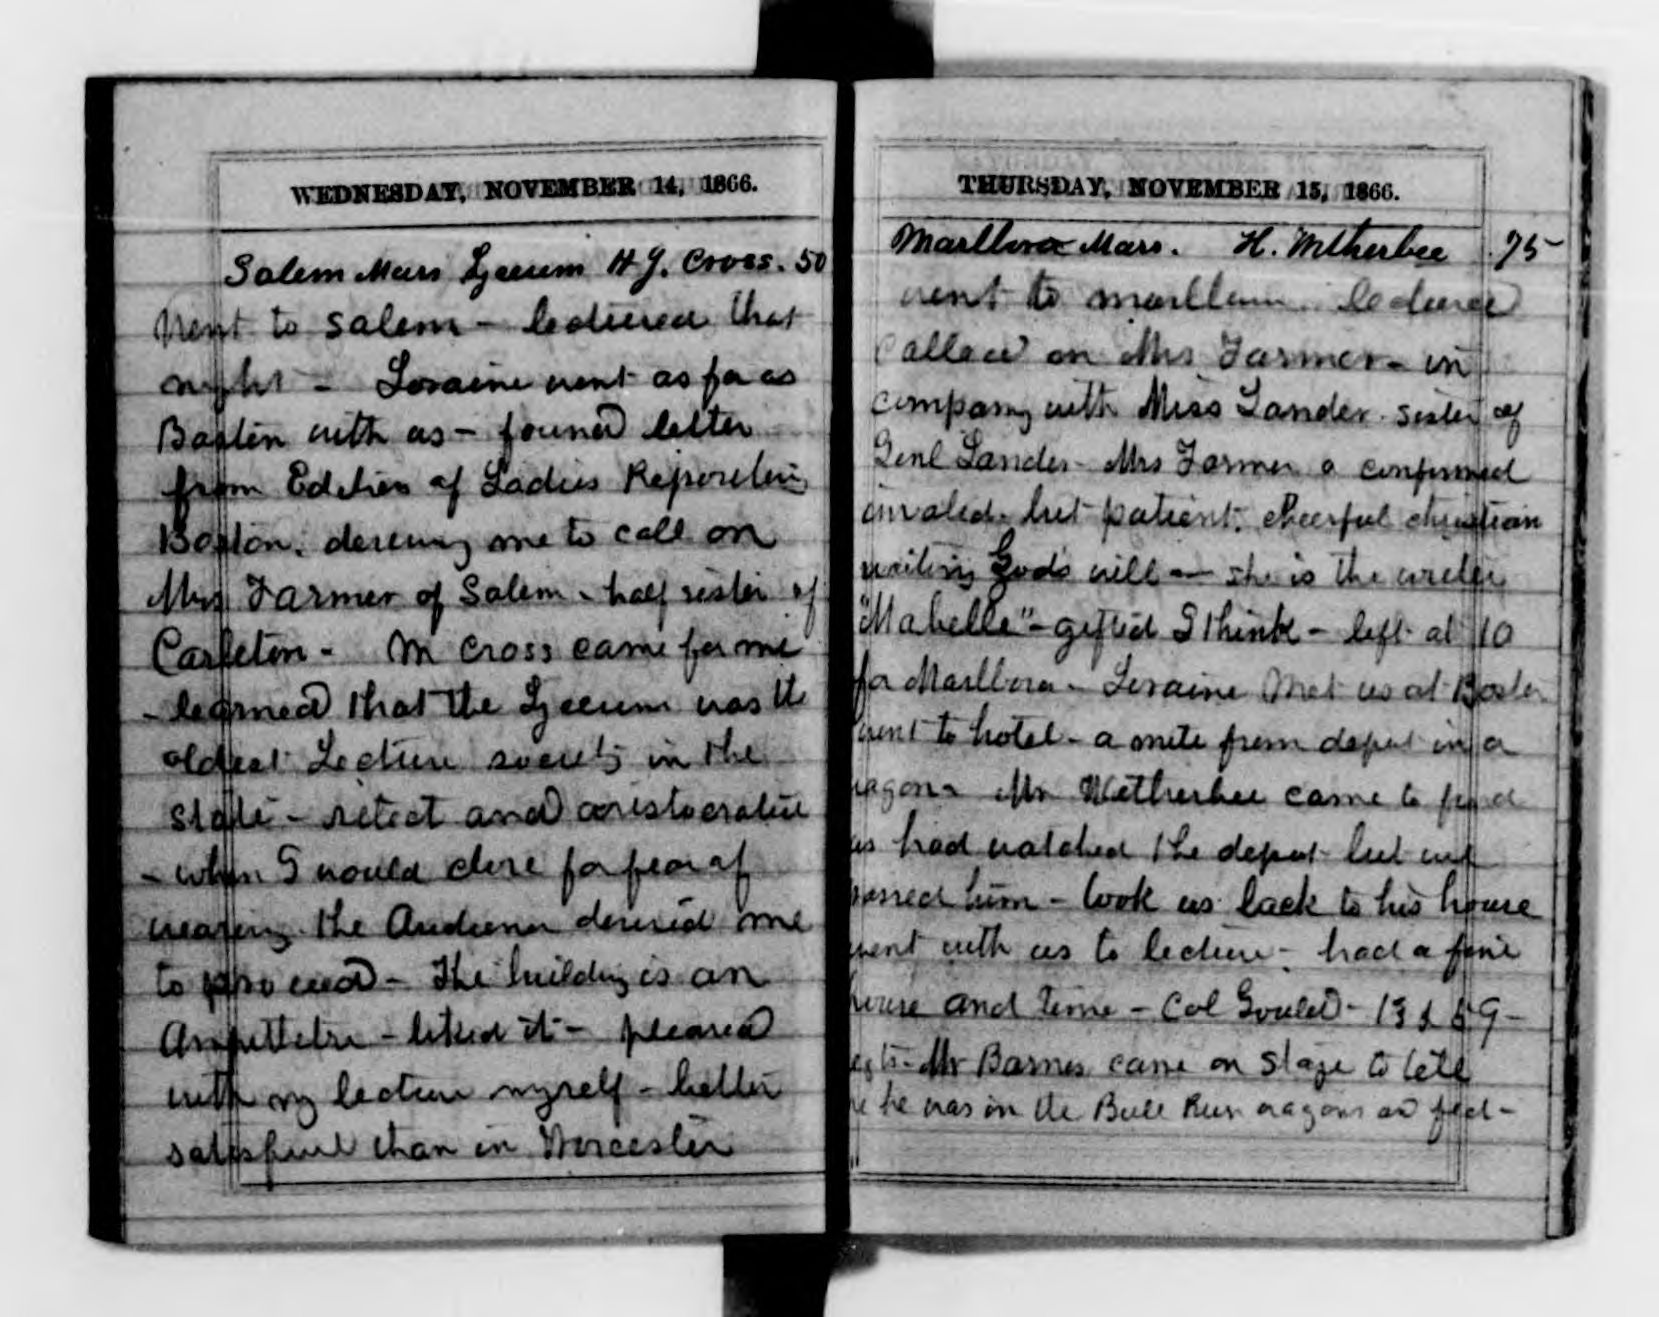 WEDNESDAY, NOVEMBER 14, 1866.
Salem Mass Lyceum H J. Cross. 50
Went to Salem - lectured that
night - Loraine went as far as
Boston with as - found letter
from Editress of Ladies Repository
Boston. desiring me to call on
Mrs Farmer of Salem - half sister of
Carleton - Mr Cross came for me
- learned that the Lyceum was the
oldest Lecture society in the
state - select and aristocratic
- when I would close for fear of
wearing the Audience desired me
to proceed - The building is an
- liked it - pleased
with my lecture myself - better
satisfied than in Worcester
THURSDAY, NOVEMBER 15, 1866.
Marlboro Mass. H. Witherbee 75
went to Marlboro. lectured
Called on Mrs Farmer - in
company with Miss Lander sister of
Genl Lander - Mrs Farmer a confirmed
invalid - but patient, cheerful christian
waiting God's will - she is the writer
"Mabelle" - gifted I think - left at 10
for Marlboro - Loraine Met us at Boston
went to hotel - a mile from depot in a
wagon - Mr Wetherbee came to find
us had watched the depot but we
passed him - took us back to his house
went with us to lecture - had a fine
house and time - Col Gould - 13 & 59 -
egts - Mr Barnes came on stage to tell
me he was in the Bull Run wagons as fed -